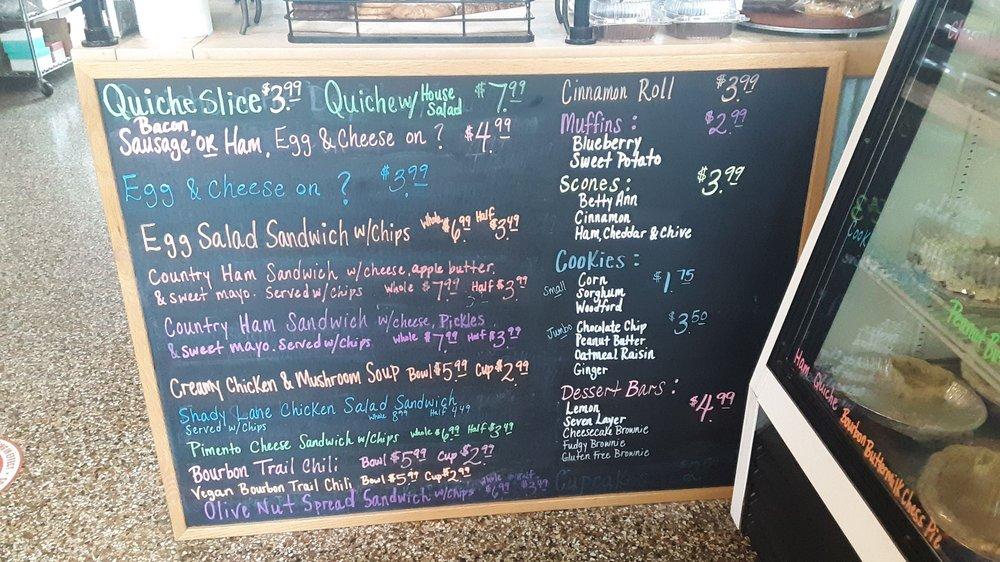 Quiche Slice $3.99 Quiche w/ House Salad $7.99
Bacon
Sausage "OR Ham, Egg & Cheese on ? $4.99
Egg & Cheese on ? $3.99
Egg Salad Sandwich w/Chips whole $6.99 Half $3.49
Country Ham Sandwich w/cheese, apple butter,
& sweet mayo. Served w/ Chips Whole $7.99 Half $3.99
Country Ham Sandwich w/cheese, Pickles
& sweet mayo. Served w/ Chips whole $7.99 Half $3.99
Creamy Chicken & Mushroom Soup Bowl $5.99 Cup $2.99
Shady Lane Chicken Salad Sandwich
Served w/ Chips whole 8.99 Half 4.49
Pimento Cheese Sandwich w/Chips whole $6.99 Half $3.49
Bourbon Trail Chili Bowl $5.99 Cup $2.99
Vegan Bourbon Trail Chili Bowl $5.99 Cup $2.99
Olive Nut Spread Sandwich w/chips whole $6.99 $3.99
Cinnamon Roll $3.99
Muffins: $2.99
Blueberry
Sweet Potato
Scones: $3.99
Betty Ann
Cinnamon
Ham, Cheddar & Chive
Cookies:
Small Corn $1.75
Sorghum
Woodford
Jumbo Chocolate Chip $3.50
Peanut Butter
Oatmeal Raisin
Ginger
Dessert Bars: $4.99
Lemon
Seven Layer
Cheesecake Brownie
Fudgy Brownie
Gluten Free Brownie
Cupcake
Peanut B
Ham Quiche
Bourbon Buttermilk Chess Pie